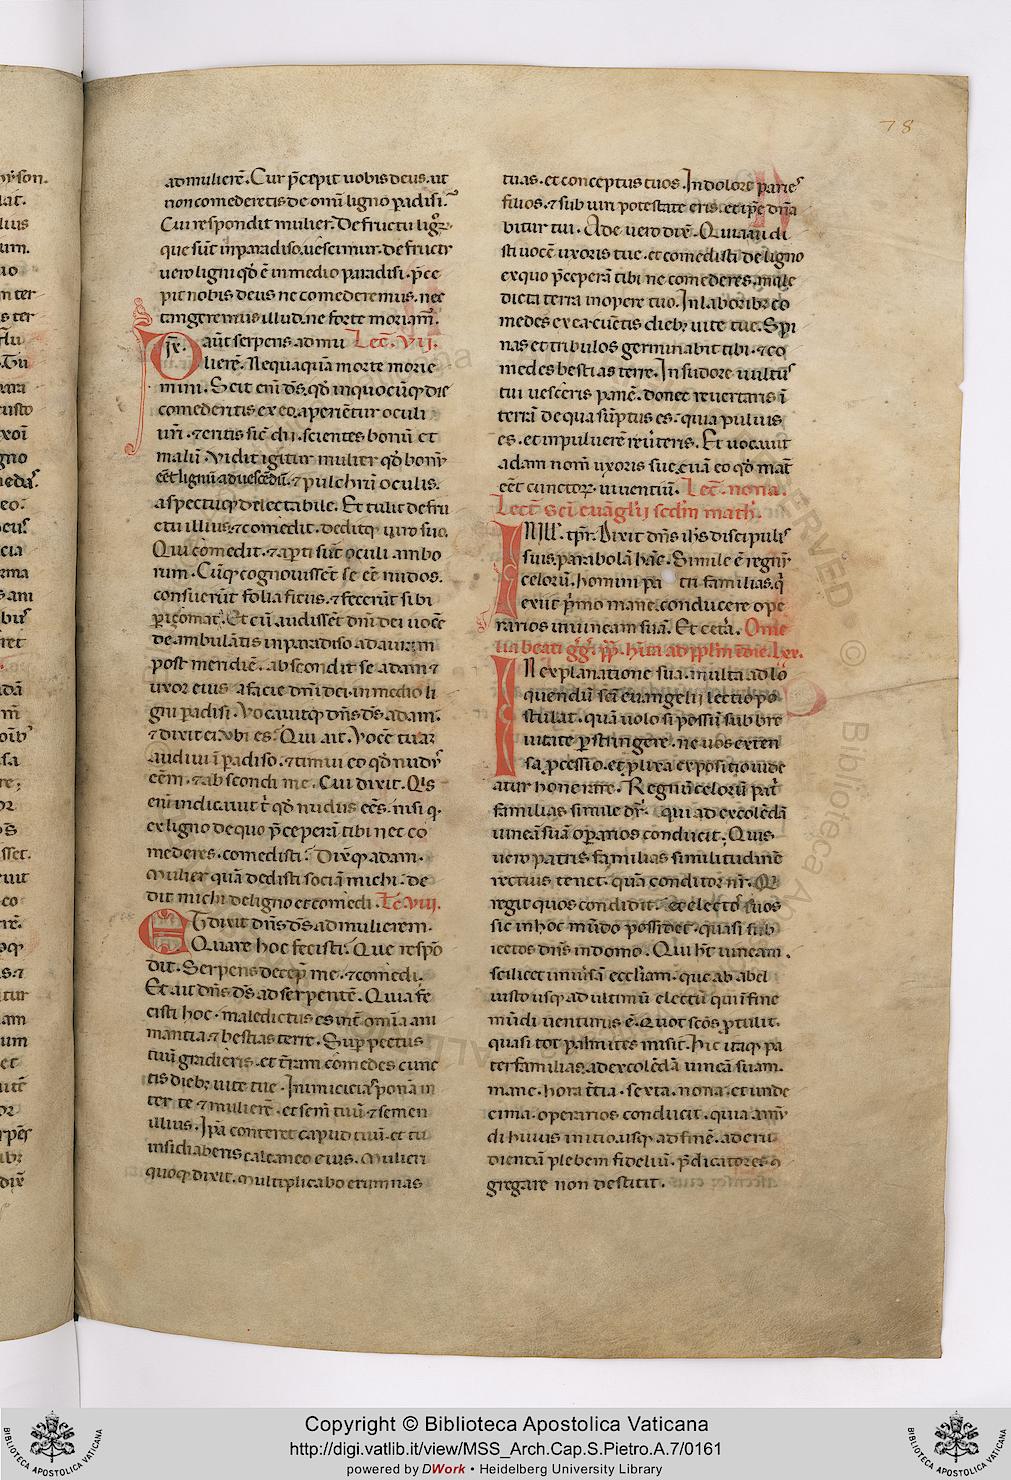 78
ad mulierē. Cur p̄cepit uobis deus. ut
non comederetis de om̄i ligno paradisi.
Cui respondit mulier. De fructu lignorꝫ
que sūt in paradiso. uescimur. de fructu
uero ligni qd̄ ē in medio paradisi. p̄ce
pit nobis deus ne comederemus. nec
tangeremus illud. ne forte moriam̄.
Dix̄. aūt serpens ad mu Lec̄. VII.
lierē. Nequaquam morte morie
mini. Scit eni d̄s. qd̄ in quocūq; die
comederitis ex eo. aperiētur oculi
ur̄i. ⁊ eritis sic̄ dii. scientes bonū et
malū. Vidit igitur mulier qd̄ bonū
eēt lignū ad uescēdū. ⁊ pulchrū oculis.
aspectuq; delectabile. Et tulit de fru
ctu illius. ⁊ comedit. deditq; uiro suo.
Qui comedit. ⁊ apti sūt oculi ambo
rum. Cūq; cognouissēt se eē nudos.
consuerūt folia ficus. ⁊ fecerūt sibi
periȝomata. Et cū audissēt dn̄i dei uocē
de ambulātis in paradiso ad auram
post meridiē. abscondit se adam ⁊
uxor eius a facie dn̄i dei. in medio li
gni paradisi. Vocauitq; dn̄s d̄s adam.
⁊ dixit ei. Vbi es. Qui ait. Vocē tuaꝫ
audiui ī paradiso. ⁊ timui eo qd̄ nudus
eēm. ⁊ abscondi me. Cui dixit. Qis
eni indicauit t̄ qd̄ nudus eēs. nisi q.
ex ligno de quo p̄ceperā tibi ne co
mederes. comedisti. Dixq; adam.
Mulier quā dedisti sociā michi. de
dit michi de ligno et comedi. Lc̄. VIII.
Et dixit dn̄s d̄s ad mulierem.
Quare hoc fecisti. Que respō
dit. Serpens decepit me. ⁊ comedi.
Et ait dn̄s d̄s ad serpentē. Quia fe
cisti hoc. maledictus es int̄ omia ani
mantia. ⁊ bestias terre. Super pectus
tuū gradieris. et terram comedes cunc
tis dieb; uite tue. Inimicicias ponā in
ter te ⁊ mulierē. et sem̄ tuū ⁊ semen
illius. Ip̄a conteret capud tuū. et tu
insidiaberis calcaneo eius. Mulieri
quoq; dixit. Multiplicabo erumnas
tuas. et conceptus tuos. In dolore paries
filios. ⁊ sub uiri potestate eris. et ip̄e dn̄a
bitur tui. Ade uero dix̄. Quia audi
sti uocē uxoris tue. et comedisti de ligno
ex quo p̄ceperā tibi ne comederes. male
dicta terra in opere tuo. In laborib; co
medes ex ea cūctis dieb; uite tue. Spi
nas et tribulos germinabit tibi. ⁊ co
medes bestias terre. In sudore uultus
tui uesceris panē. donec reuertaris ī
terrā de qua sūptus es. quia puluis
es. et in puluerē reūteris. Et uocauit
adam nom̄ uxoris sue. euā eo qd̄ mat̄
eēt cunctorꝫ uiuentiū. Lec̄. nona.
Lec̄t sc̄i euāgl̄ij secdm math̄.
IN ill. tpr̄. Dixit dn̄s ih̄s discipulis
suis. parabolā hāc. Simile ē regnū
celorū. homini pa tri familias. q̄
exiit primo mane. conducere ope
rarios in uineam suā. Et cetā. Ome
lia beati gḡ. pp̄. hita ad pp̄lm in die. lxx.
IN explanatione sua. multa ad lo
quendū sc̄i euangelij lectio po
stulat. quā uolo si possū sub bre
uitate perstringere. ne uos exten
sa p̄cessio. et plixa expositio uide
atur honerare. Regnū celorū pat̄
familias simile dr̄. qui ad excolēdā
uineā suā operarios conducit. Quis
uero patris familias similitudinē
rectius tenet. quā conditor nr̄. Qi
regit quos condidit. et electos suos
sic in hoc mūdo possidet. quasi sub
iectos dn̄s in domo. Qui h̄t uineam.
scilicet uniūsā eccl̄iam. que ab abel
iusto usq; ad ultimū electū qui ī fine
mūdi uenturus ē. Quot scōs ptulit.
quasi tot palmites misit. Hic itaq; pa
terfamilias. ad excolēdā uineā suam.
mane. hora t̄tia. sexta. nona. et unde
cima. operarios conducit. quia a mū
di huius initio. usq; ad finē. ad eru
diendā plebem fideliū. p̄dicatores ɔ
gregare non destitit.
Copyright © Biblioteca Apostolica Vaticana
http://digi.vatlib.it/view/MSS_Arch.Cap.S.Pietro.A.7/0161
powered by DWork • Heidelberg University Library
BIBLIOTECA APOSTOLICA VATICANA
BIBLIOTECA APOSTOLICA VATICANA